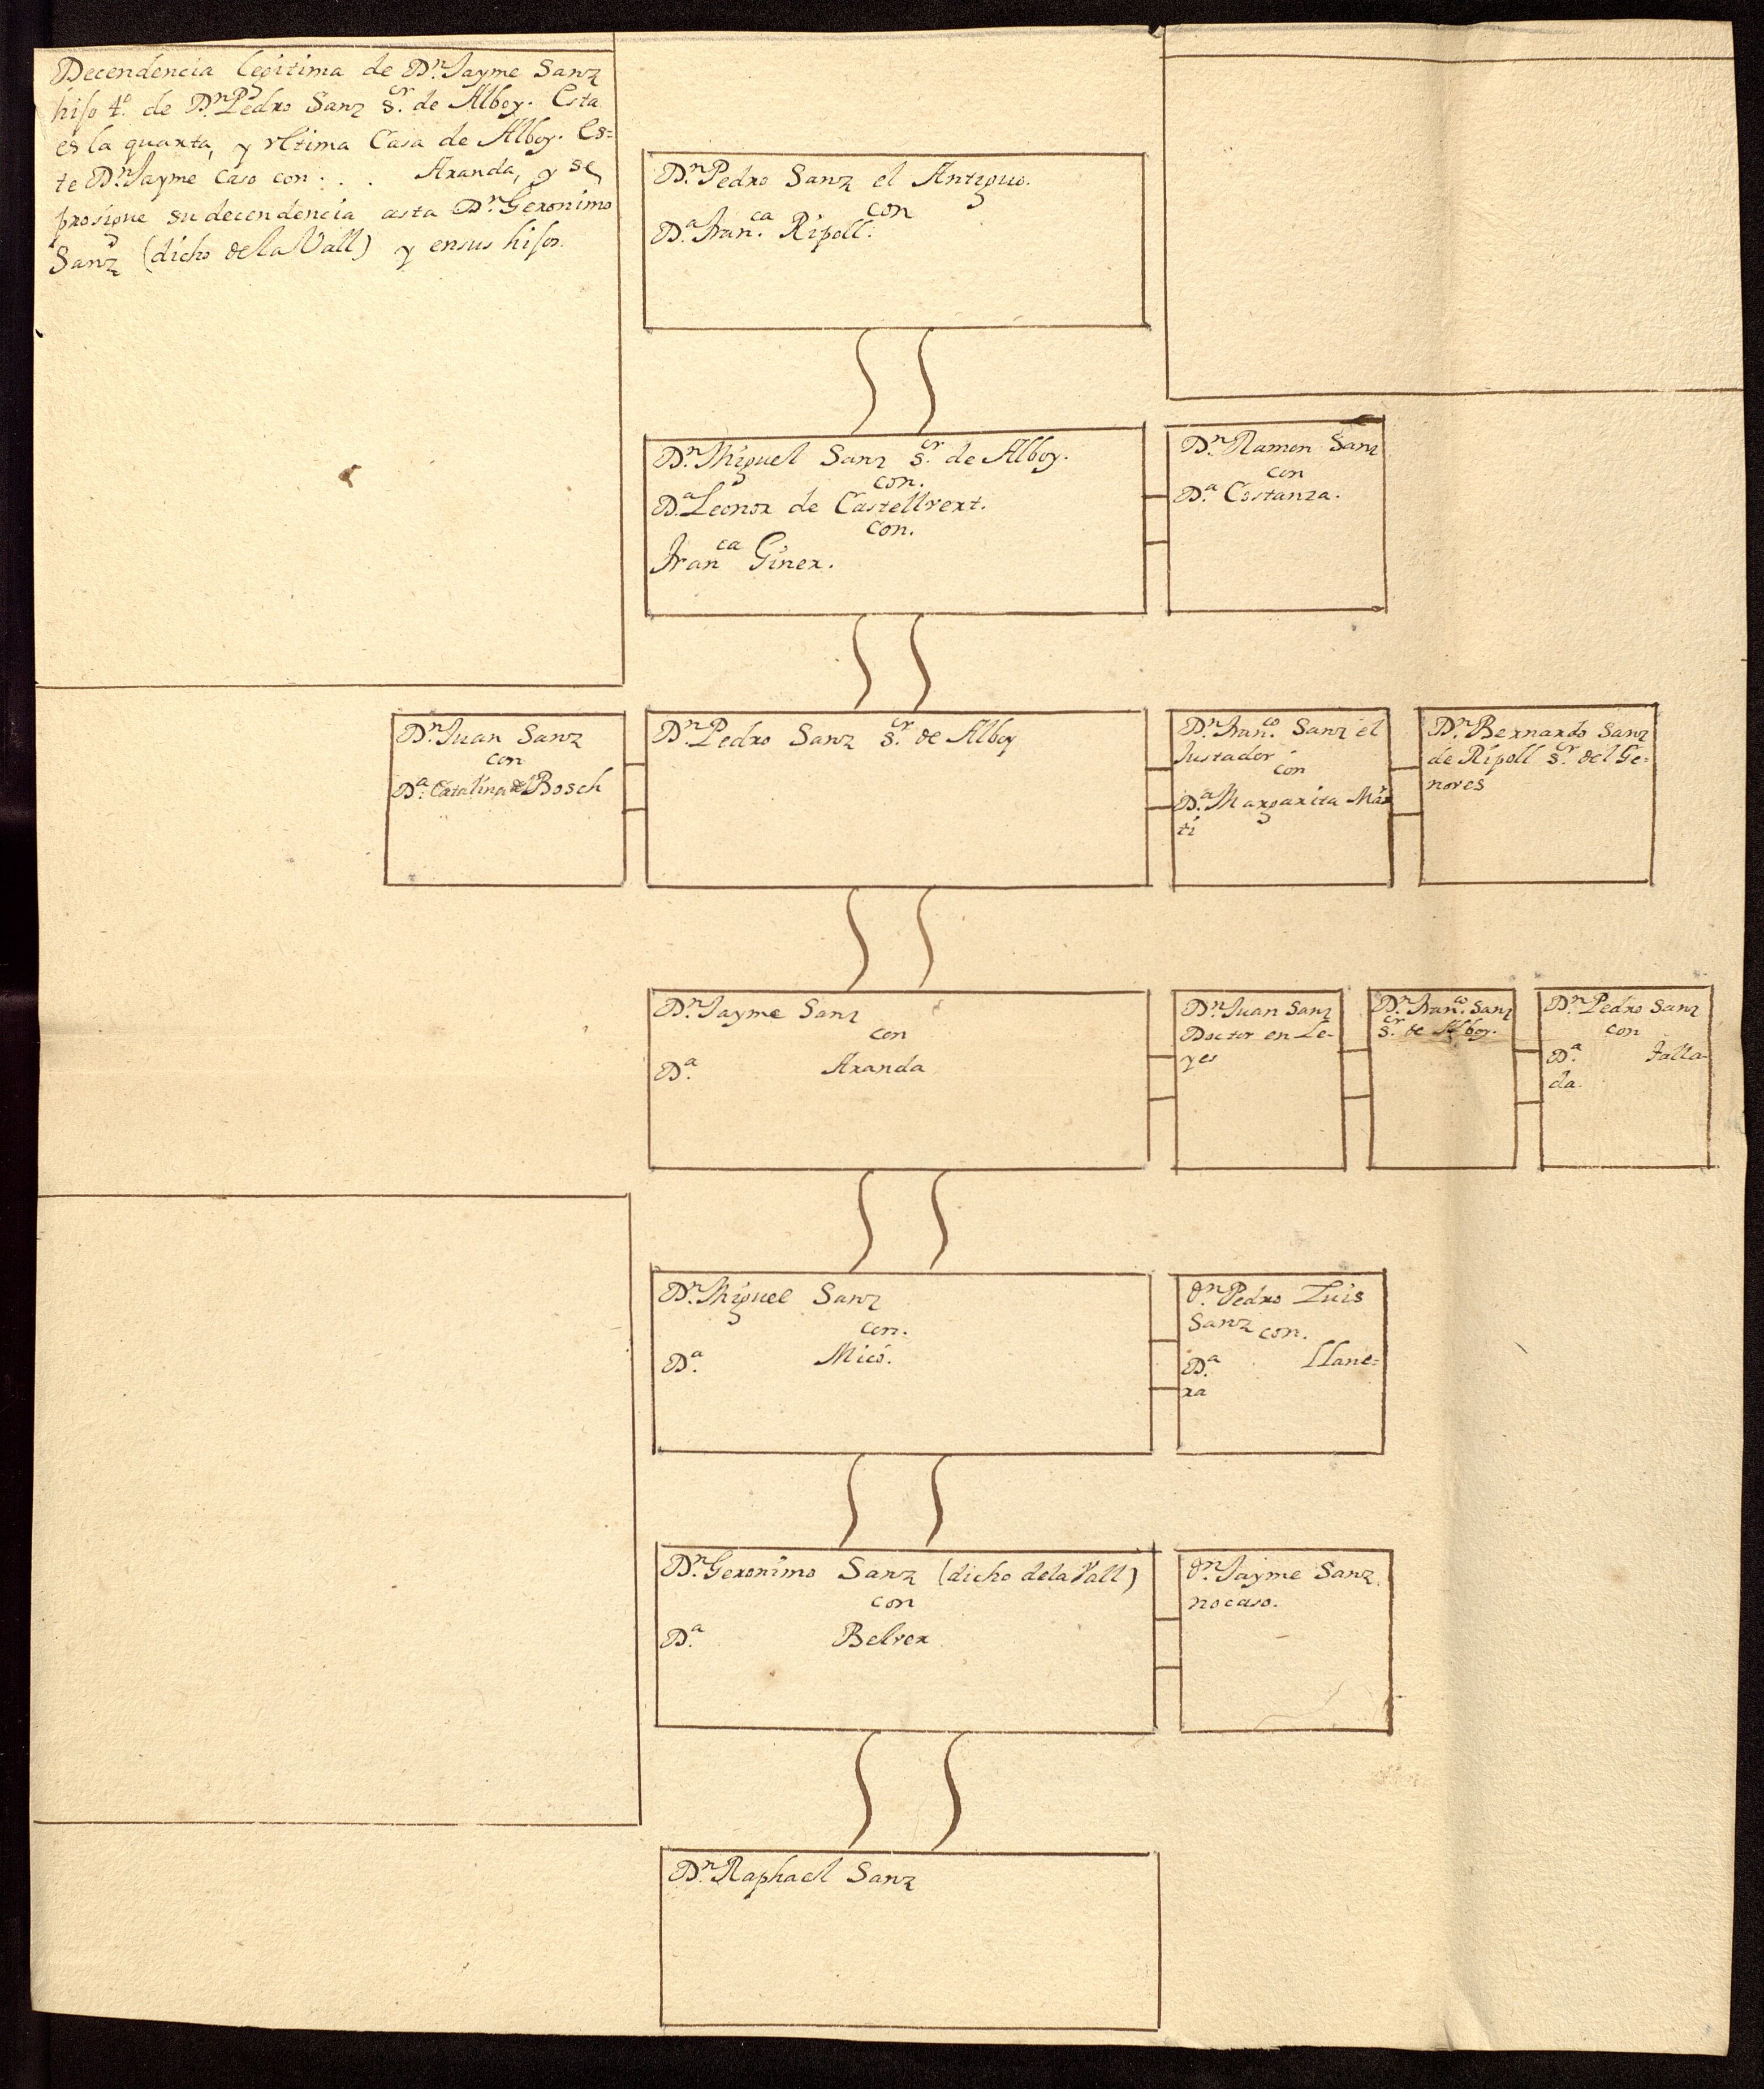 Decendencia legitima de Dn. Jayme Sanz
hijo 4º. de Dn. Pedro Sanz Sr. de Alboy. Esta
es la quarta, y vltima Casa de Alboy. Es=
te Dn. Jayme caso con . . . Aranda, y se
prosigue su decendencia asta Dn. Geronimo
Sanz (dicho de la Vall) y en sus hijos.
Dn. Pedro Sanz el Antiguo.
con
Da. Fran.ca Ripoll.
Dn. Miguel Sanz Sr. de Alboy.
con.
Da. Leonor de Castellvert.
con.
Fran.ca Giner.
Dn. Ramon Sanz
con
Da. Costanza.
Dn. Juan Sanz
con
Da. Catalina del Bosch
Dn. Pedro Sanz Sr. de Alboy
Dn. Fran.co Sanz el
Justador
con
Da. Margarita Mar
ti
Dn. Bernardo Sanz
de Ripoll Sr. del Ge-
noves
Dn. Jayme Sanz
con
Da. Aranda
Dn. Juan Sanz
Doctor en Le-
yes
Dn. Fran.co Sanz
Sr. de Alboy.
Dn. Pedro Sanz
con
Da. Talla-
da.
Dn. Miguel Sanz
con.
Da. Micó.
Dn. Pedro Luis
Sanz con.
Da. Llane=
ra
Dn. Geronimo Sanz (dicho de la Vall)
con
Da. Belver
Dn. Jayme Sanz.
no caso.
Dn. Raphael Sanz